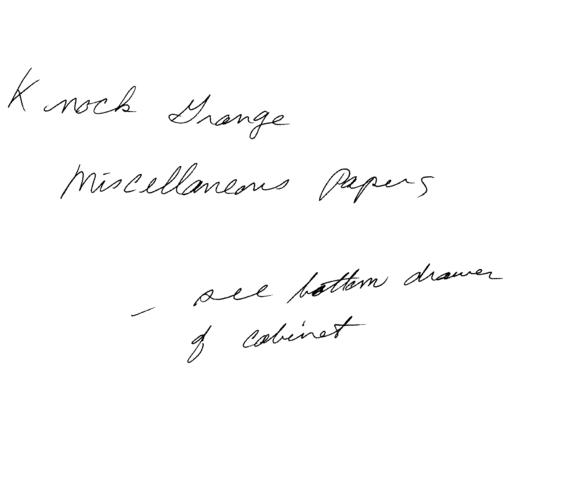 Knock Grange
Miscellaneous Papers
- see bottom drawer
of cabinet